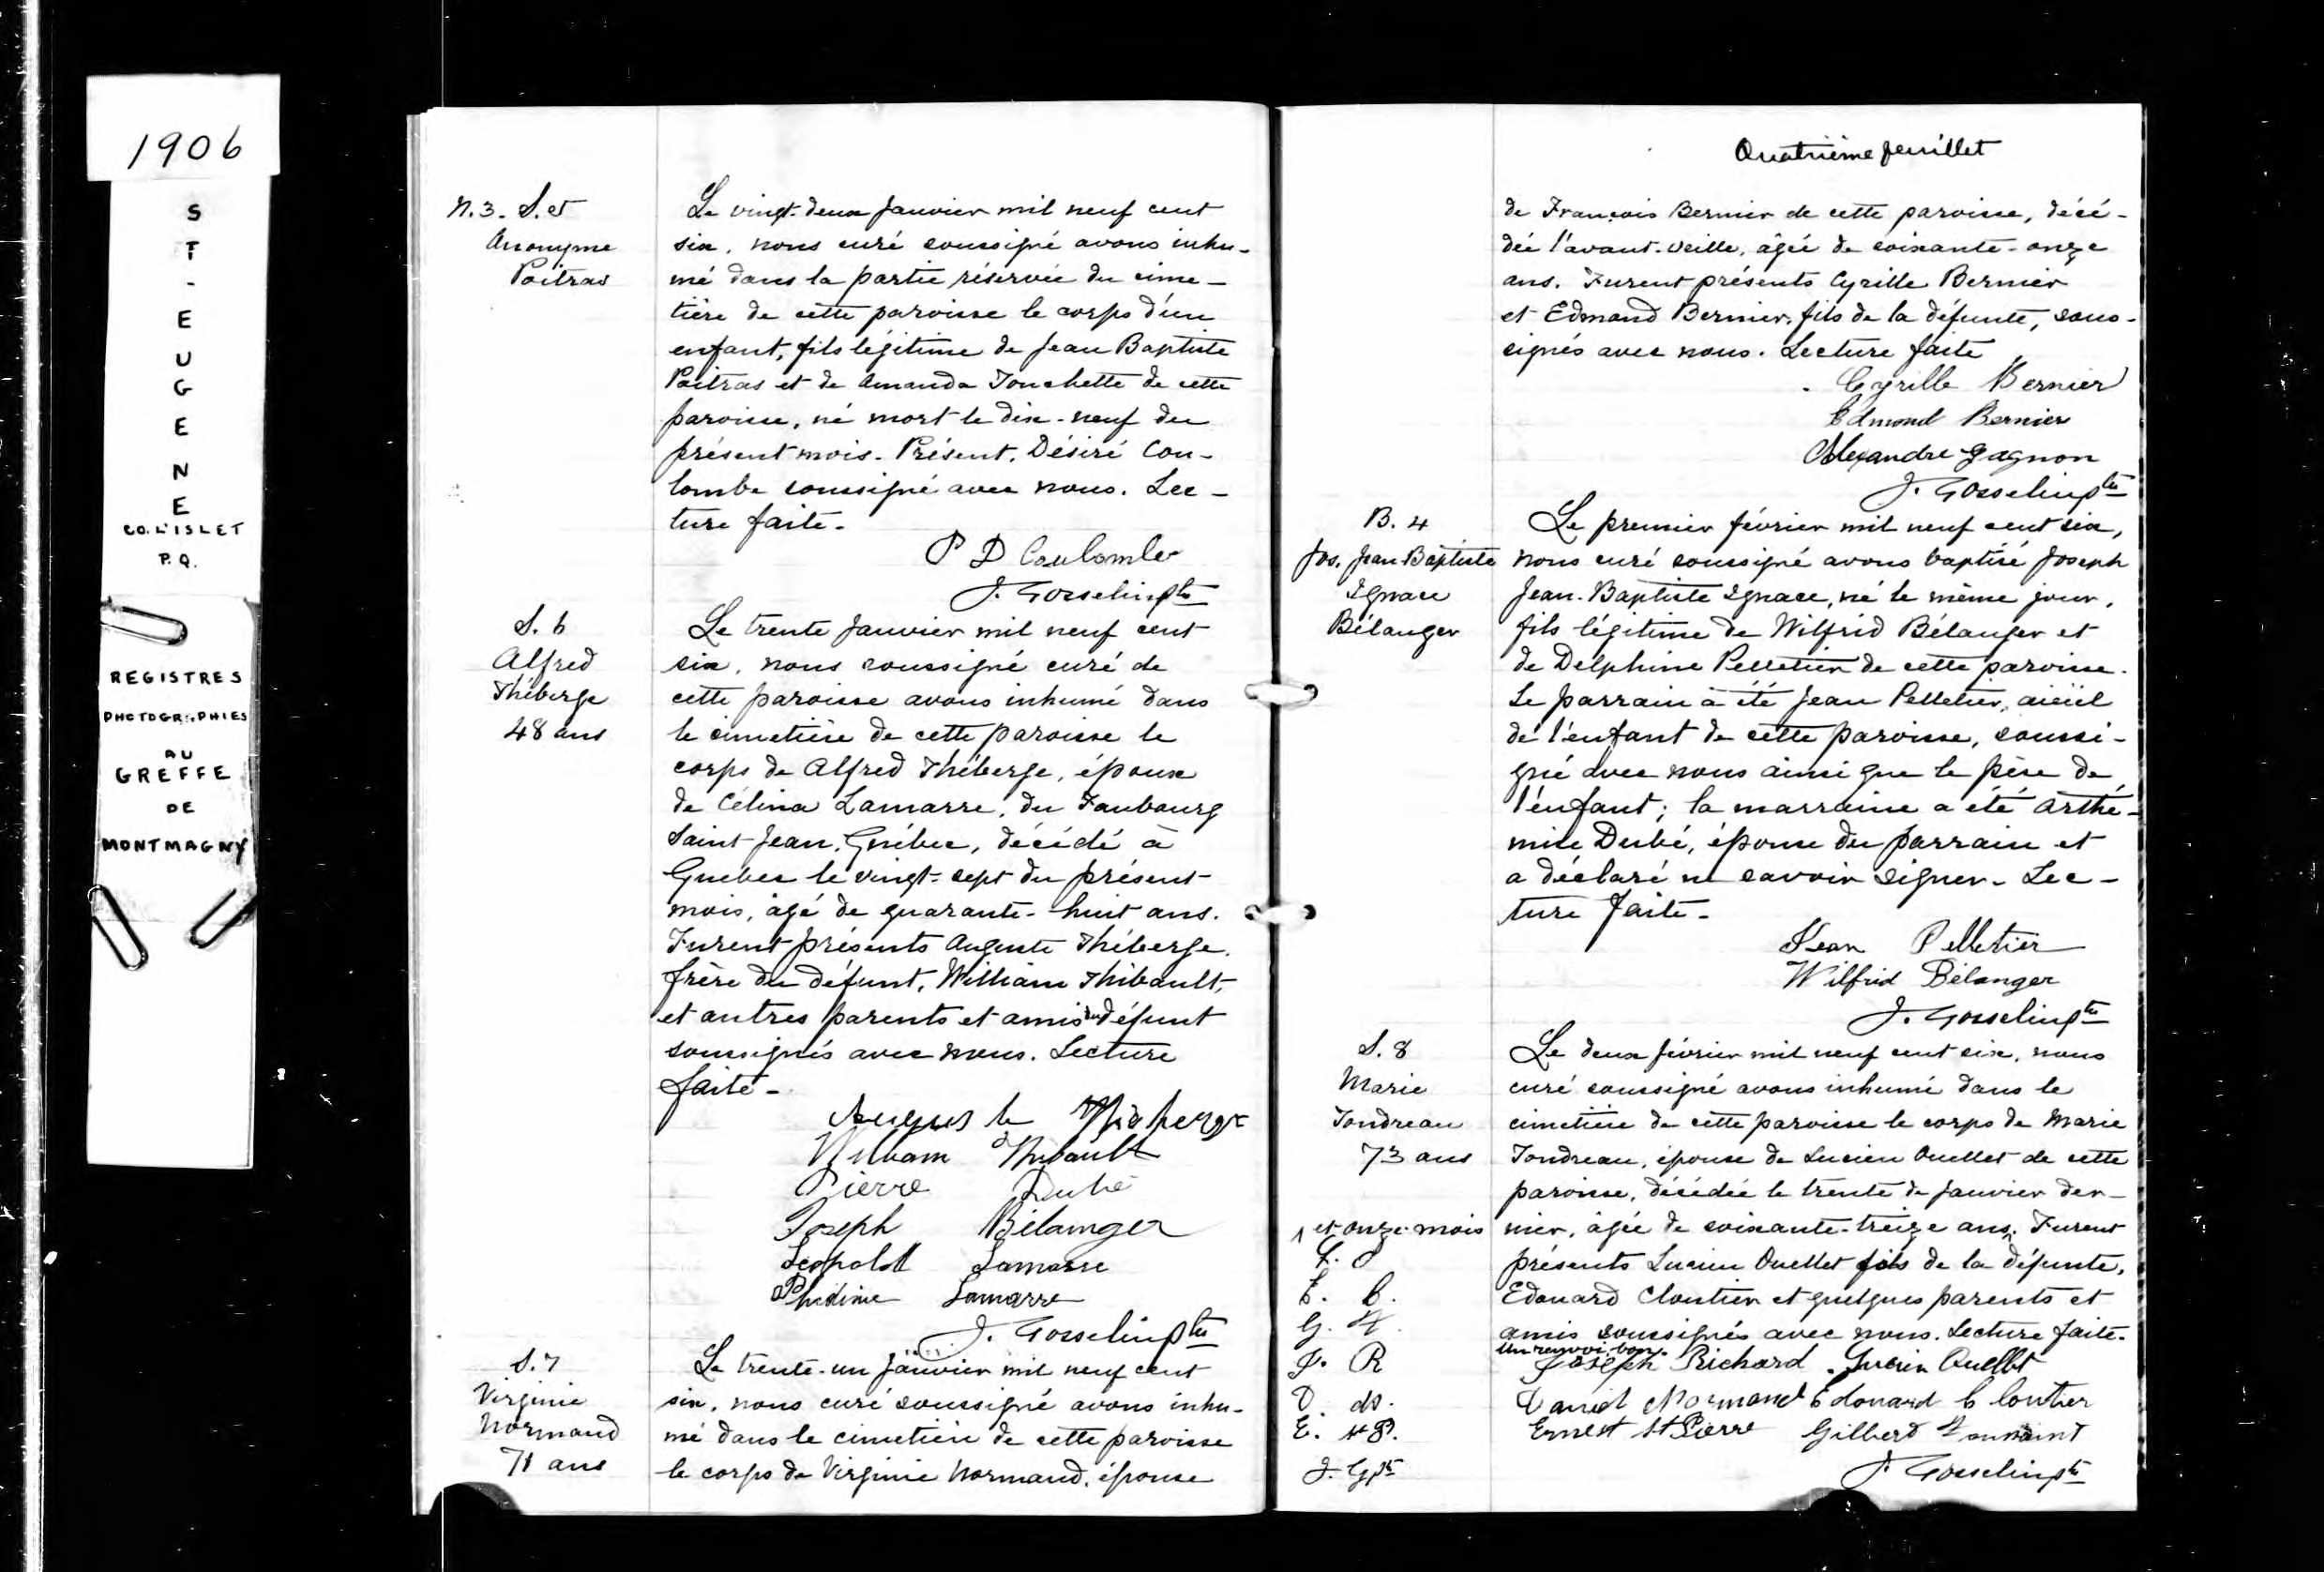 1906
ST-EUGENE
CO. L'ISLET
P.Q.
REGISTRES
PHOTOGRAPHIES
AU
GREFFE
DE
MONTMAGNY
N.3. S. et
Anonyme
Poitras
Le vingt-deux janvier mil neuf cent
six, nous curé soussigné avons inhu-
mé dans la partie réservée du cime-
tière de cette paroisse le corps d'un
enfant, fils légitime de Jean Baptiste
Poitras et de Amanda Touchette de cette
paroisse, né mort le dix-neuf du
présent mois. Présent, Désiré Cou-
lombe soussigné avec nous. Lec-
ture faite.
P D Coulombe
J. Gosselin ptre
S. 6
Alfred
Théberge
48 ans
Le trente janvier mil neuf cent
six, nous soussigné curé de
cette paroisse avons inhumé dans
le cimetière de cette paroisse le
corps de Alfred Théberge, époux
de Célina Lamarre, du Faubourg
Saint-Jean, Québec, décédé à
Québec le vingt-sept du présent
mois, âgé de quarante-huit ans.
Furent présents Auguste Théberge,
frère du défunt, William Thibault,
et autres parents et amis du défunt
soussignés avec nous. Lecture
faite.
Auguste Théberge
William Thibault
Pierre Dubé
Joseph Bélanger
Léopold Lamarre
Phidime Lamarre
J. Gosselin ptre
S. 7
Virginie
Normand
71 ans
Le trente-un janvier mil neuf cent
six, nous curé soussigné avons inhu-
mé dans le cimetière de cette paroisse
le corps de Virginie Normand, épouse
Quatrième feuillet
de François Bernier de cette paroisse, décé-
dée l'avant-veille, âgée de soixante-onze
ans. Furent présents Cyrille Bernier
et Edmond Bernier, fils de la défunte, sous-
signés avec nous. Lecture faite
Cyrille Bernier
Edmond Bernier
Alexandre Gagnon
J. Gosselin ptre
B. 4
Jos. Jean Baptiste
Ignace
Bélanger
Le premier février mil neuf cent six,
nous curé soussigné avons baptisé Joseph
Jean-Baptiste Ignace, né le même jour,
fils légitime de Wilfrid Bélanger et
de Delphine Pelletier de cette paroisse.
Le parrain a été Jean Pelletier, aïeul
de l'enfant de cette paroisse, soussi-
gné avec nous ainsi que le père de
l'enfant; la marraine a été Arthé-
mise Dubé, épouse du parrain et
a déclaré ne savoir signer. Lec-
ture faite.
Jean Pelletier
Wilfrid Bélanger
J. Gosselin ptre
S. 8
Marie
Tondreau
73 ans
Le deux février mil neuf cent six, nous
curé soussigné avons inhumé dans le
cimetière de cette paroisse le corps de Marie
Tondreau, épouse de Lucien Ouellet de cette
paroisse, décédée le trente de janvier der-
nier, âgée de soixante-treize ans. Furent
présents Lucien Ouellet fils de la défunte,
Edouard Cloutier et quelques parents et
amis soussignés avec nous. Lecture faite.
Un renvoi bon.
et onze mois
L. O
E. C.
G. T.
J. R
D. N.
E. St P.
J. G ptre
Joseph Richard Lucien Ouellet
Daniel Normand Edouard Cloutier
Ernest St Pierre Gilbert Toussaint
J. Gosselin ptre